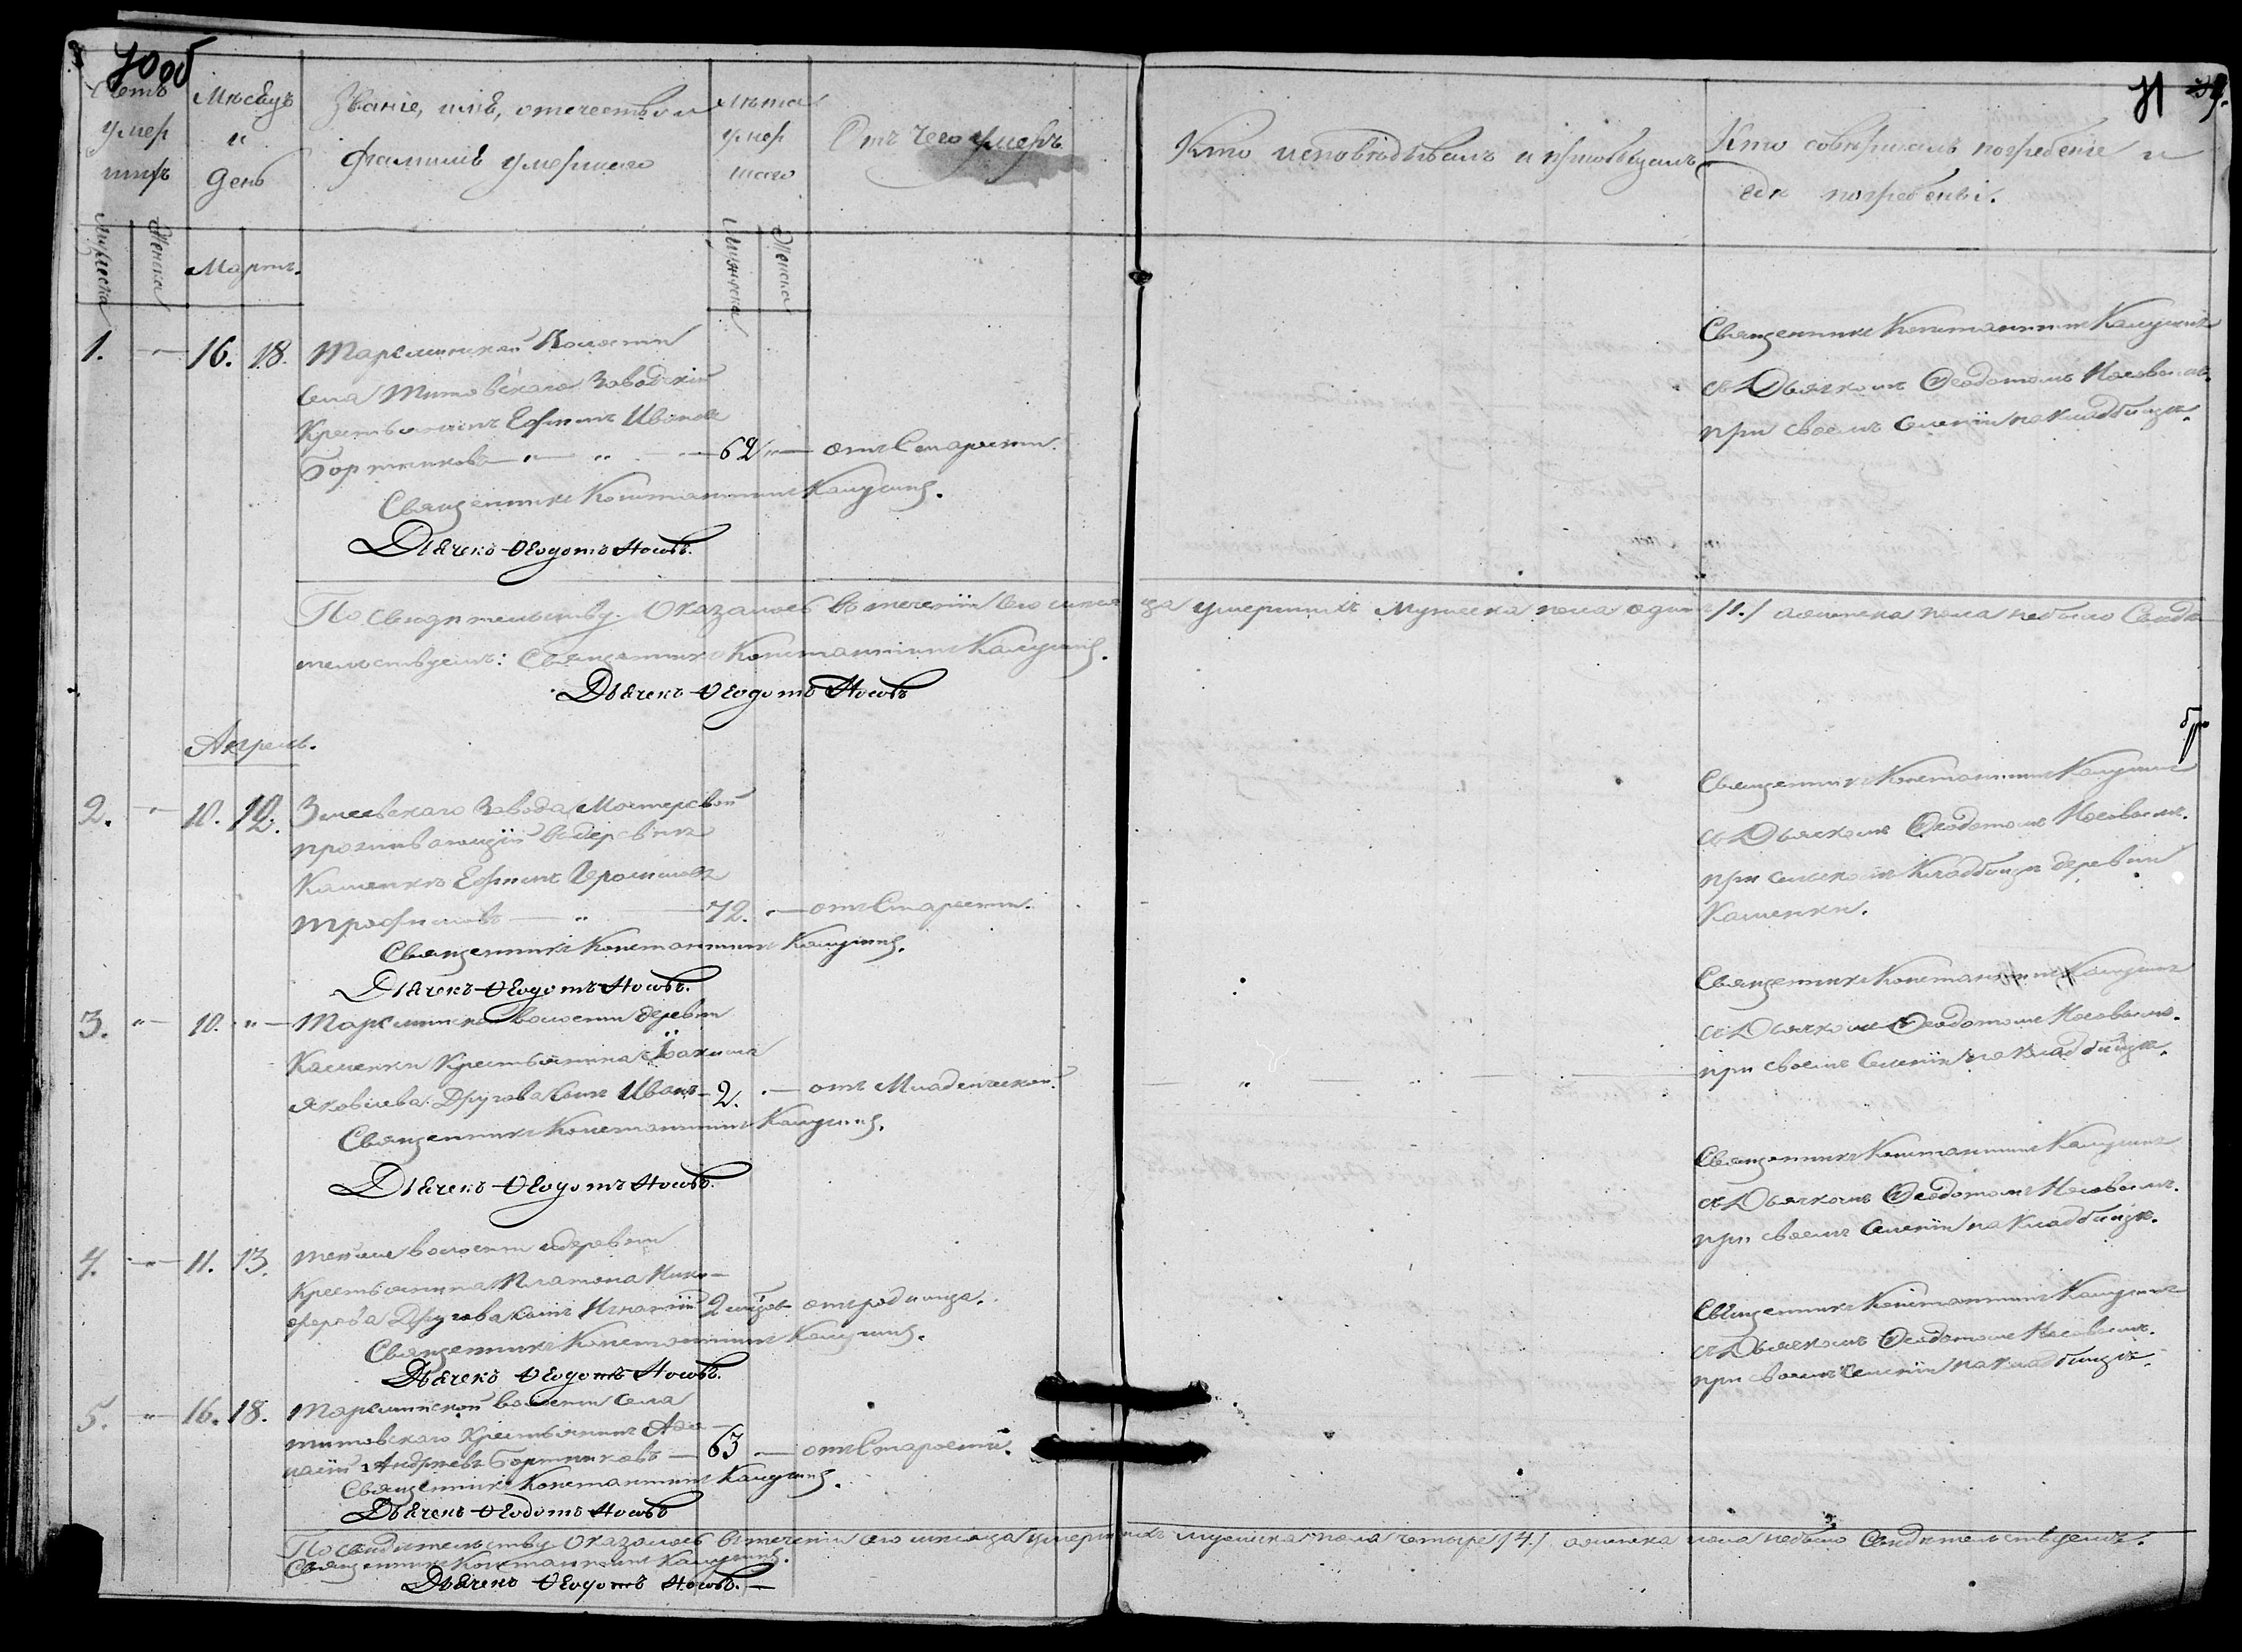 70 об
Счетъ умер шихъ
Мѣсяцъ и день
Званіе, имя, отечество и фамилія умершаго
Лѣта умер шаго
Отъ чего умеръ
Кто исповѣдывалъ и пріобщалъ
Кто совершалъ погребеніе и гдѣ погребены.
71
Мужеска
Женска
Мартъ.
Мужеска
Женска
1. 16. 18.
волости
села Титовскаго Заводскій
Крестьянинъ Ефимъ Ивановъ
Бортниковъ 62 отъ Старости.
Священникъ Константинъ Калугинъ.
Дьячекъ Ѳеодотъ Носовъ.
Священникъ Константинъ Калугинъ
съ Дьячкомъ Ѳеодотомъ Носовымъ.
при своемъ Селеніи на кладбищѣ.
По свидѣтельству Оказалось въ теченіи сего мѣсяца умершихъ мужеска пола одинъ /1./ а женска пола небыло Свидѣ-
тельствуемъ: Священникъ Константинъ Калугинъ.
Дьячекъ Ѳеодотъ Носовъ
Апрель.
2. 10. 12.
Змеевскаго Завода Мастеровой
проживающій въ деревнѣ
Каменкѣ Ефимъ Герасимовъ
Трофимовъ 72. отъ Старости.
Священникъ Константинъ Калугинъ.
Дьячекъ Ѳеодотъ Носовъ.
Священникъ Константинъ Калугинъ
съ Дьячкомъ Ѳеодотомъ Носовымъ.
при сельскомъ Кладбищѣ деревни
Каменки.
3. " 10. "
волости деревни
Каменки Крестьянина Іоакима
Яковлева Другова сынъ Иванъ 2. отъ Младенческой.
Священникъ Константинъ Калугинъ.
Дьячекъ Ѳеодотъ Носовъ.
Священникъ Константинъ Калугинъ
съ Дьячкомъ Ѳеодотомъ Носовымъ.
при своемъ Селеніи на кладбищѣ.
4. 11. 13.
тойже волости и деревни
Крестьянина Платона Ники-
форова Другова сынъ Игнатій 2 отъ родимца.
Священникъ Константинъ Калугинъ.
Дьячекъ Ѳеодотъ Носовъ.
Священникъ Константинъ Калугинъ
съ Дьячкомъ Ѳеодотомъ Носовымъ.
при своемъ Селеніи на Кладбищѣ.
5. " 16. 18.
волости Села
Титовскаго Крестьянинъ Афа-
насій Андреевъ Бортниковъ 63 отъ Старости.
Священникъ Константинъ Калугинъ.
Дьячекъ Ѳеодотъ Носовъ
Священникъ Константинъ Калугинъ
съ Дьячкомъ Ѳеодотомъ Носовымъ.
при своемъ Селеніи на кладбищѣ.
По свидѣтельству Оказалось въ теченіи сего мѣсяца умершихъ мужеска пола четыре /4./ а женска пола небыло Свидѣтельствуемъ.
Священникъ Константинъ Калугинъ.
Дьячекъ Ѳеодотъ Носовъ.